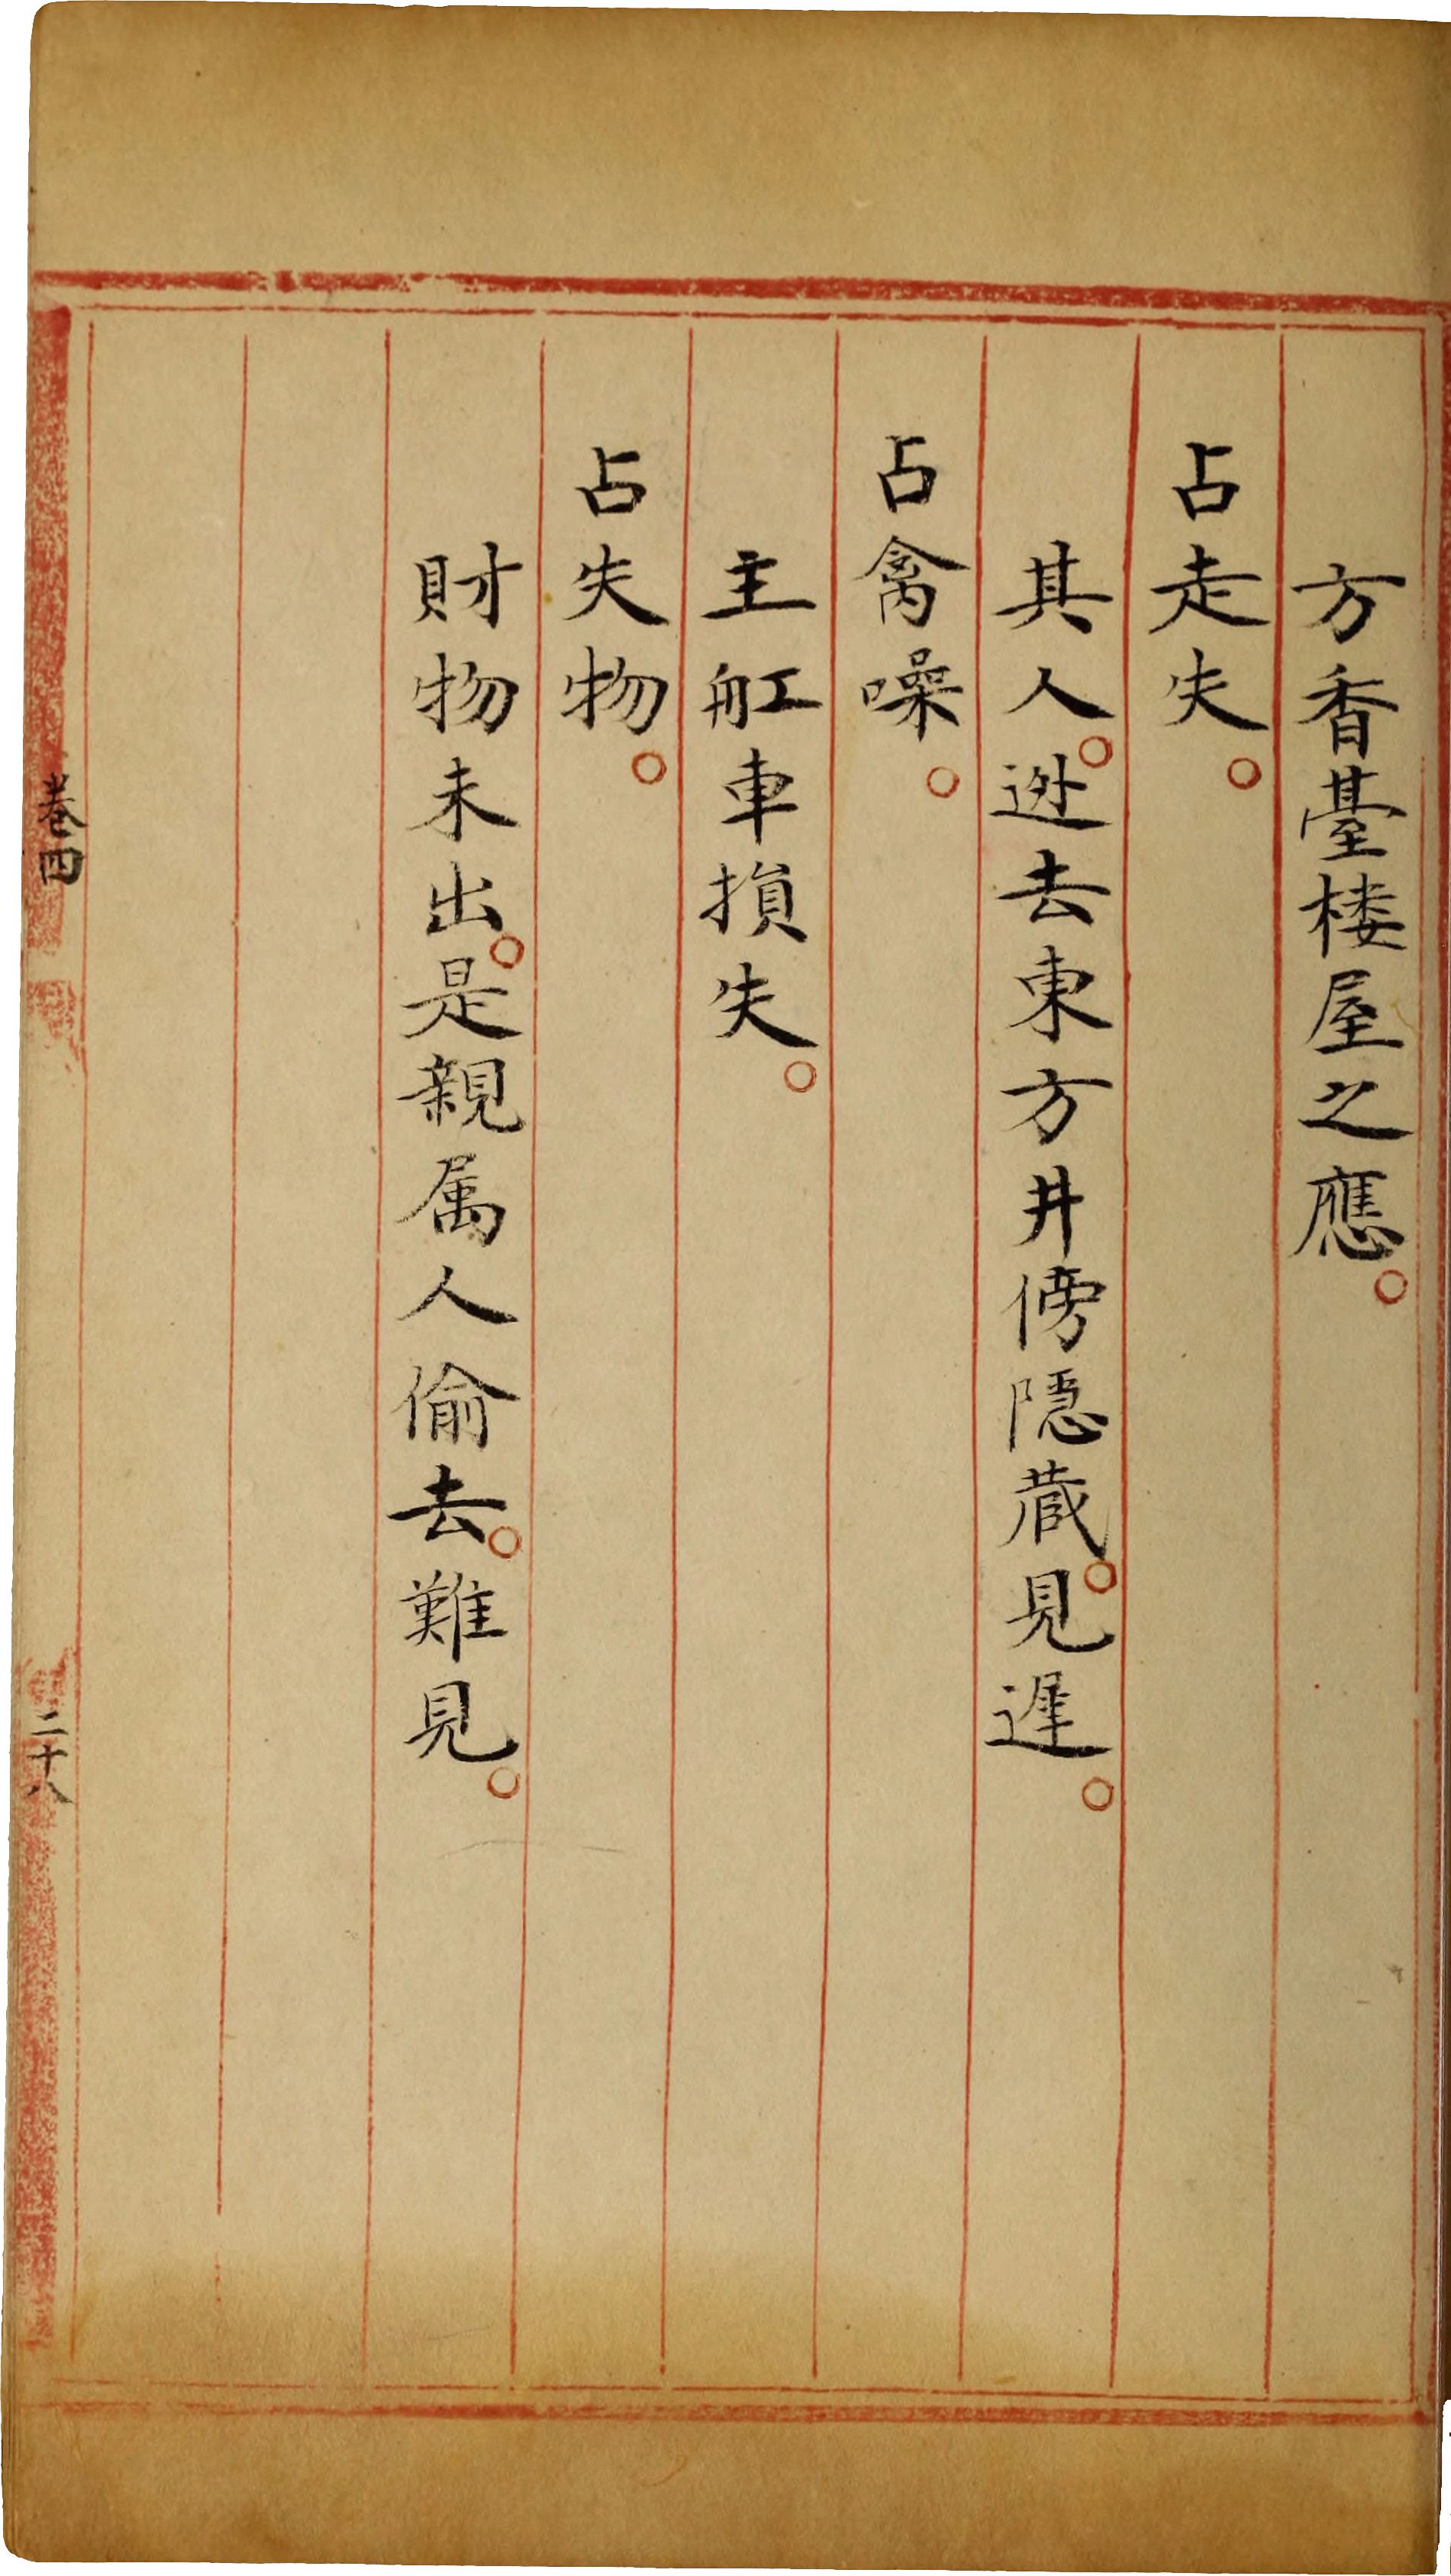 方香臺楼屋之應。
占走失。
其人。迯去東方井傍隱蔵。見遅。
占禽噪。
主舡車損失。
占失物。
財物未出。是親属人偷去。難見。
卷四
二十八